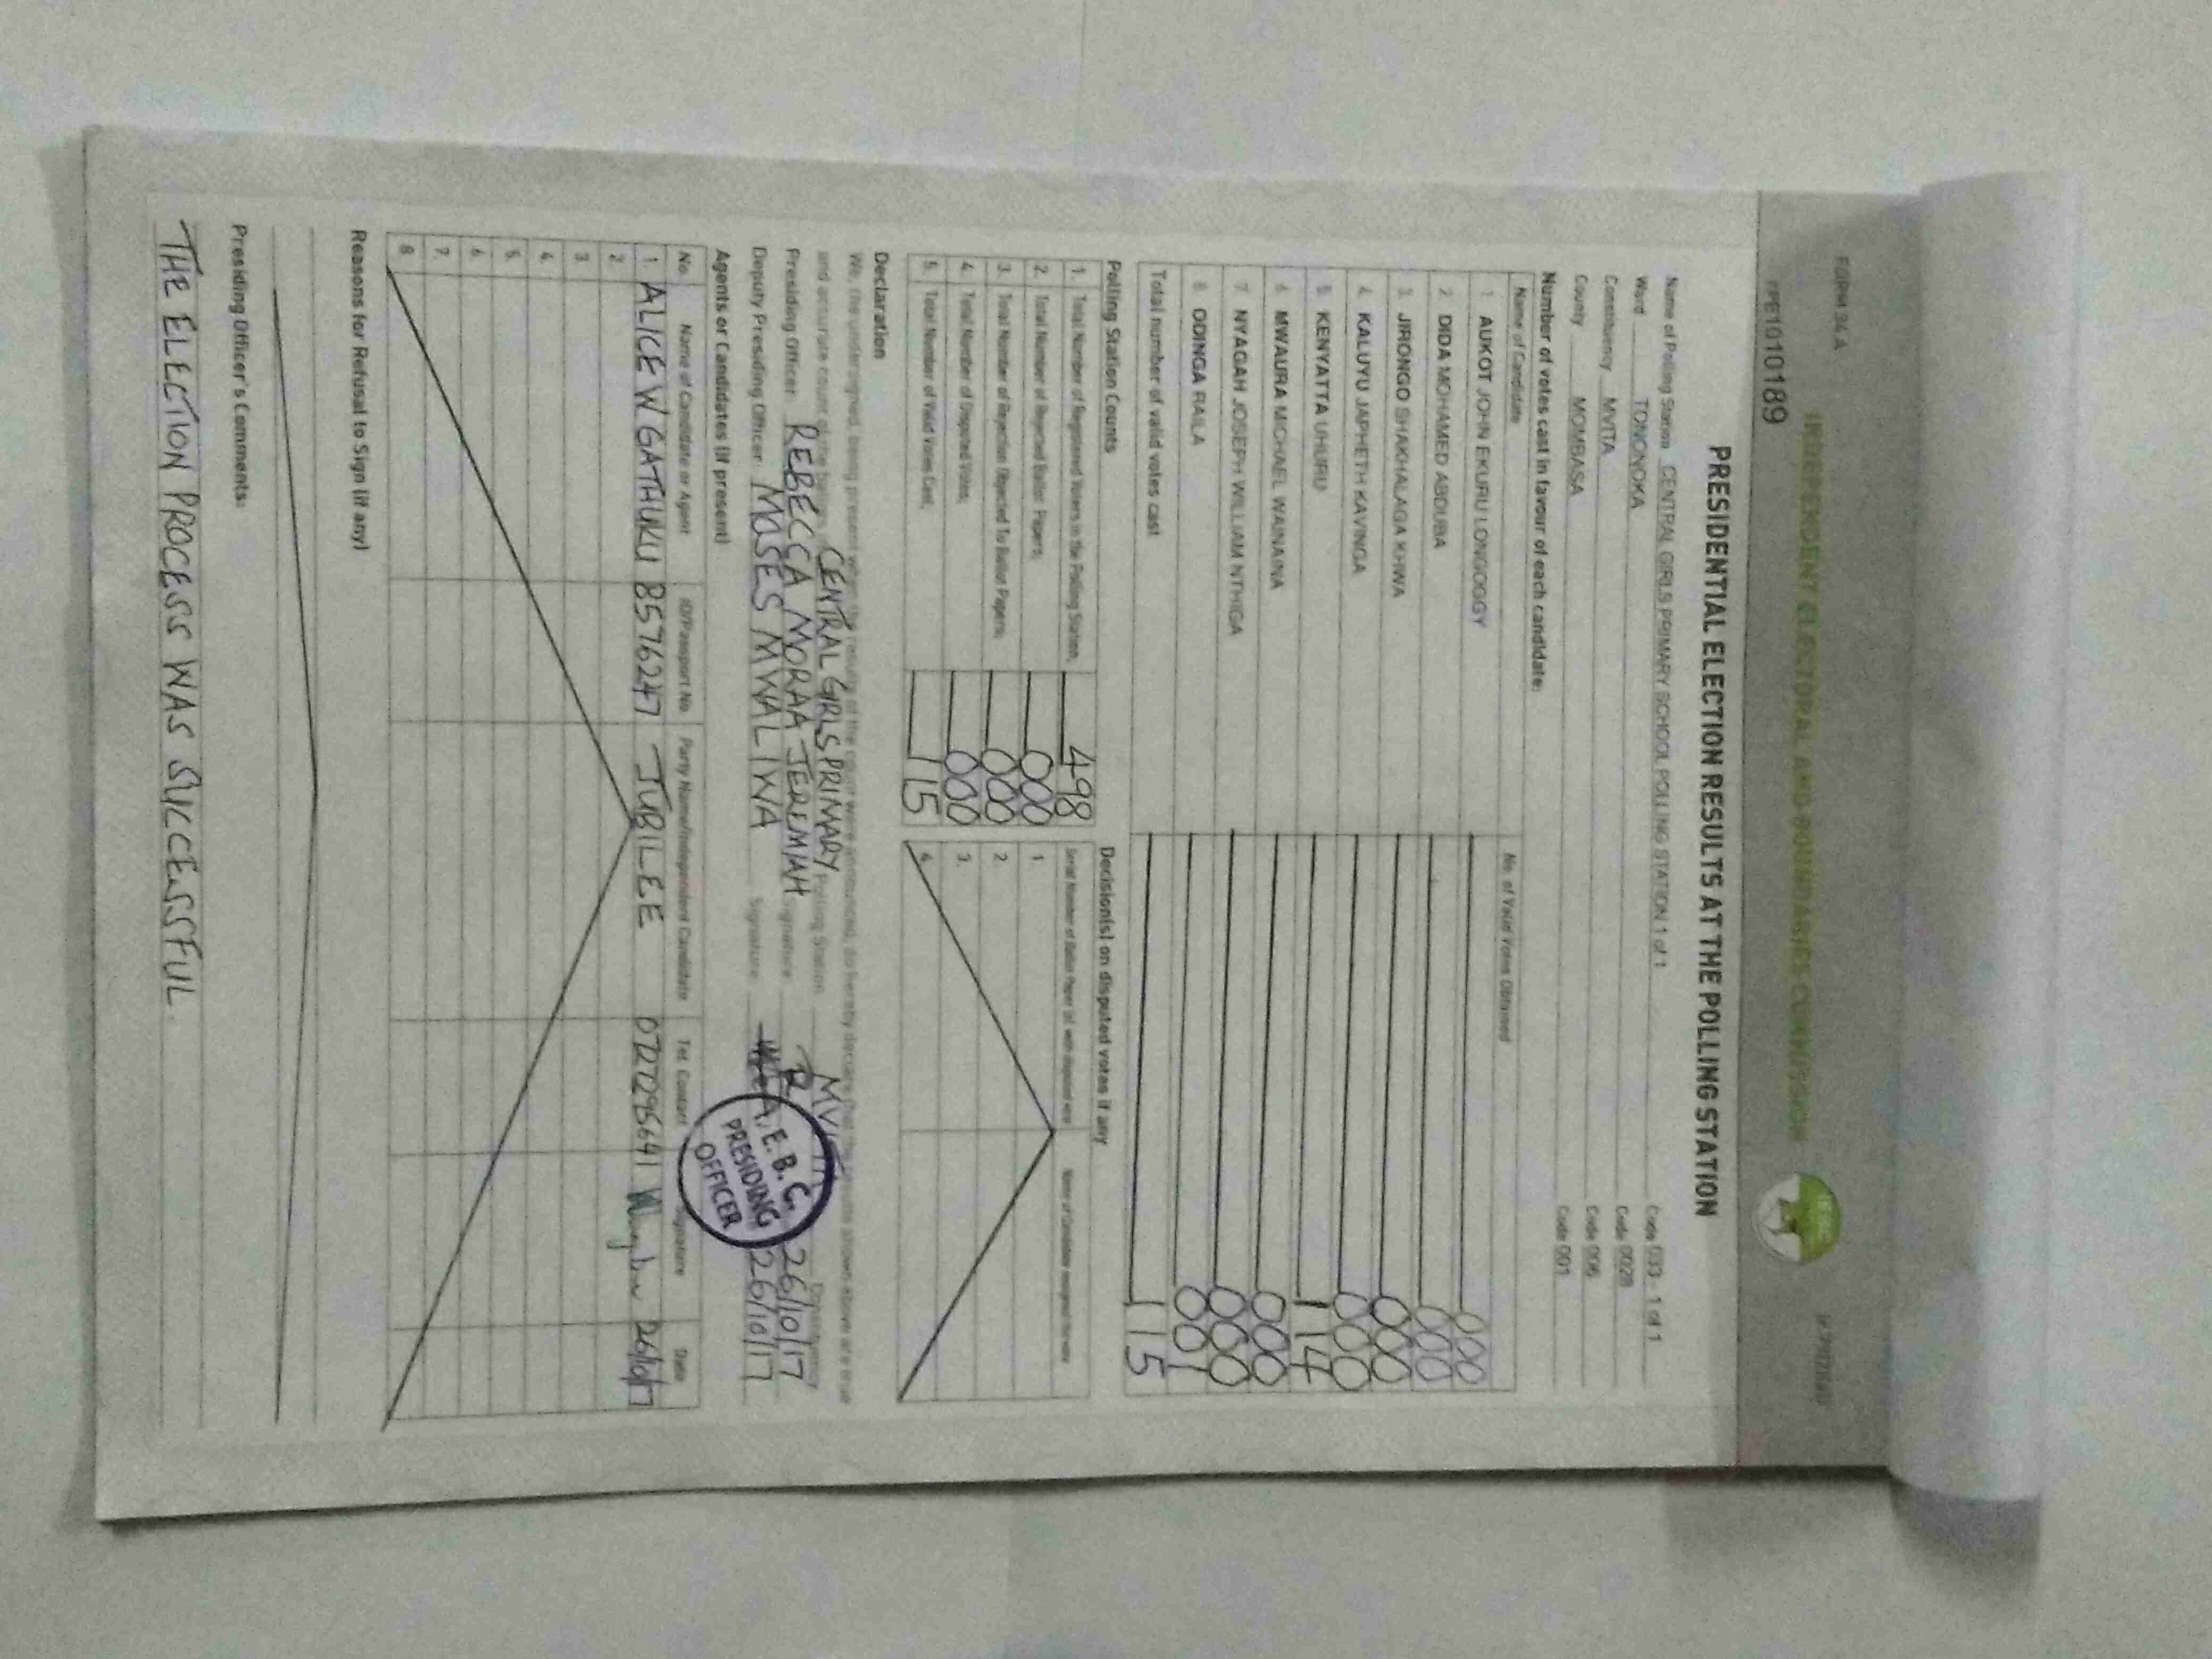 FORM 34A
INDEPENDENT ELECTORAL AND BOUNDARIES COMMISSION
PE1010189
PRESIDENTIAL ELECTION RESULTS AT THE POLLING STATION
Name of Polling Station CENTRAL GIRLS PRIMARY SCHOOL POLLING STATION 1 of 1 Code 033 - 1 of 1
Ward TONONOKA Code 0028
Constituency MVITA Code 006
County MOMBASA Code 001
Number of votes cast in favour of each candidate:
Name of Candidate No. of Valid Votes Obtained
1. AUKOT JOHN EKURU LONGOGGY 000
2. DIDA MOHAMED ABDUBA 000
3. JIRONGO SHAKHALAGA KHWA 000
4. KALUYU JAPHETH KAVINGA 000
5. KENYATTA UHURU 114
6. MWAURA MICHAEL WAINAINA 000
7. NYAGAH JOSEPH WILLIAM NTHIGA 000
8. ODINGA RAILA 001
Total number of valid votes cast 115
Polling Station Counts
1. Total Number of Registered Voters in the Polling Station; 498
2. Total Number of Rejected Ballot Papers; 000
3. Total Number of Rejection Objected To Ballot Papers; 000
4. Total Number of Disputed Votes; 000
5. Total Number of Valid Votes Cast; 115
Decision(s) on disputed votes if any
1
2
3.
4.
Declaration
We, the undersigned, being present when the results of the count were announced, do hereby declare that the results shown above are true
and accurate count of the ballots CENTRAL GIRLS PRIMARY Polling Station Constituency
Presiding Officer: REBECCA MORAA JEREMIAH Signature 26/10/17
Deputy Presiding Officer: MOSES MWALIWA Signature 26/10/17
I. E. B. C.
PRESIDING
OFFICER
Agents or Candidates (if present)
No. Name of Candidate or Agent ID/Passport No. Party Name/Independent Candidate Tel Contact Signature Date
1. ALICE W GATHUKU 8576247 JUBILEE 0722295641 26/10/17
2.
3.
4.
5.
6.
7.
8
Reasons for Refusal to Sign (if any)
Presiding Officer's Comments:
THE ELECTION PROCESS WAS SUCCESSFUL.